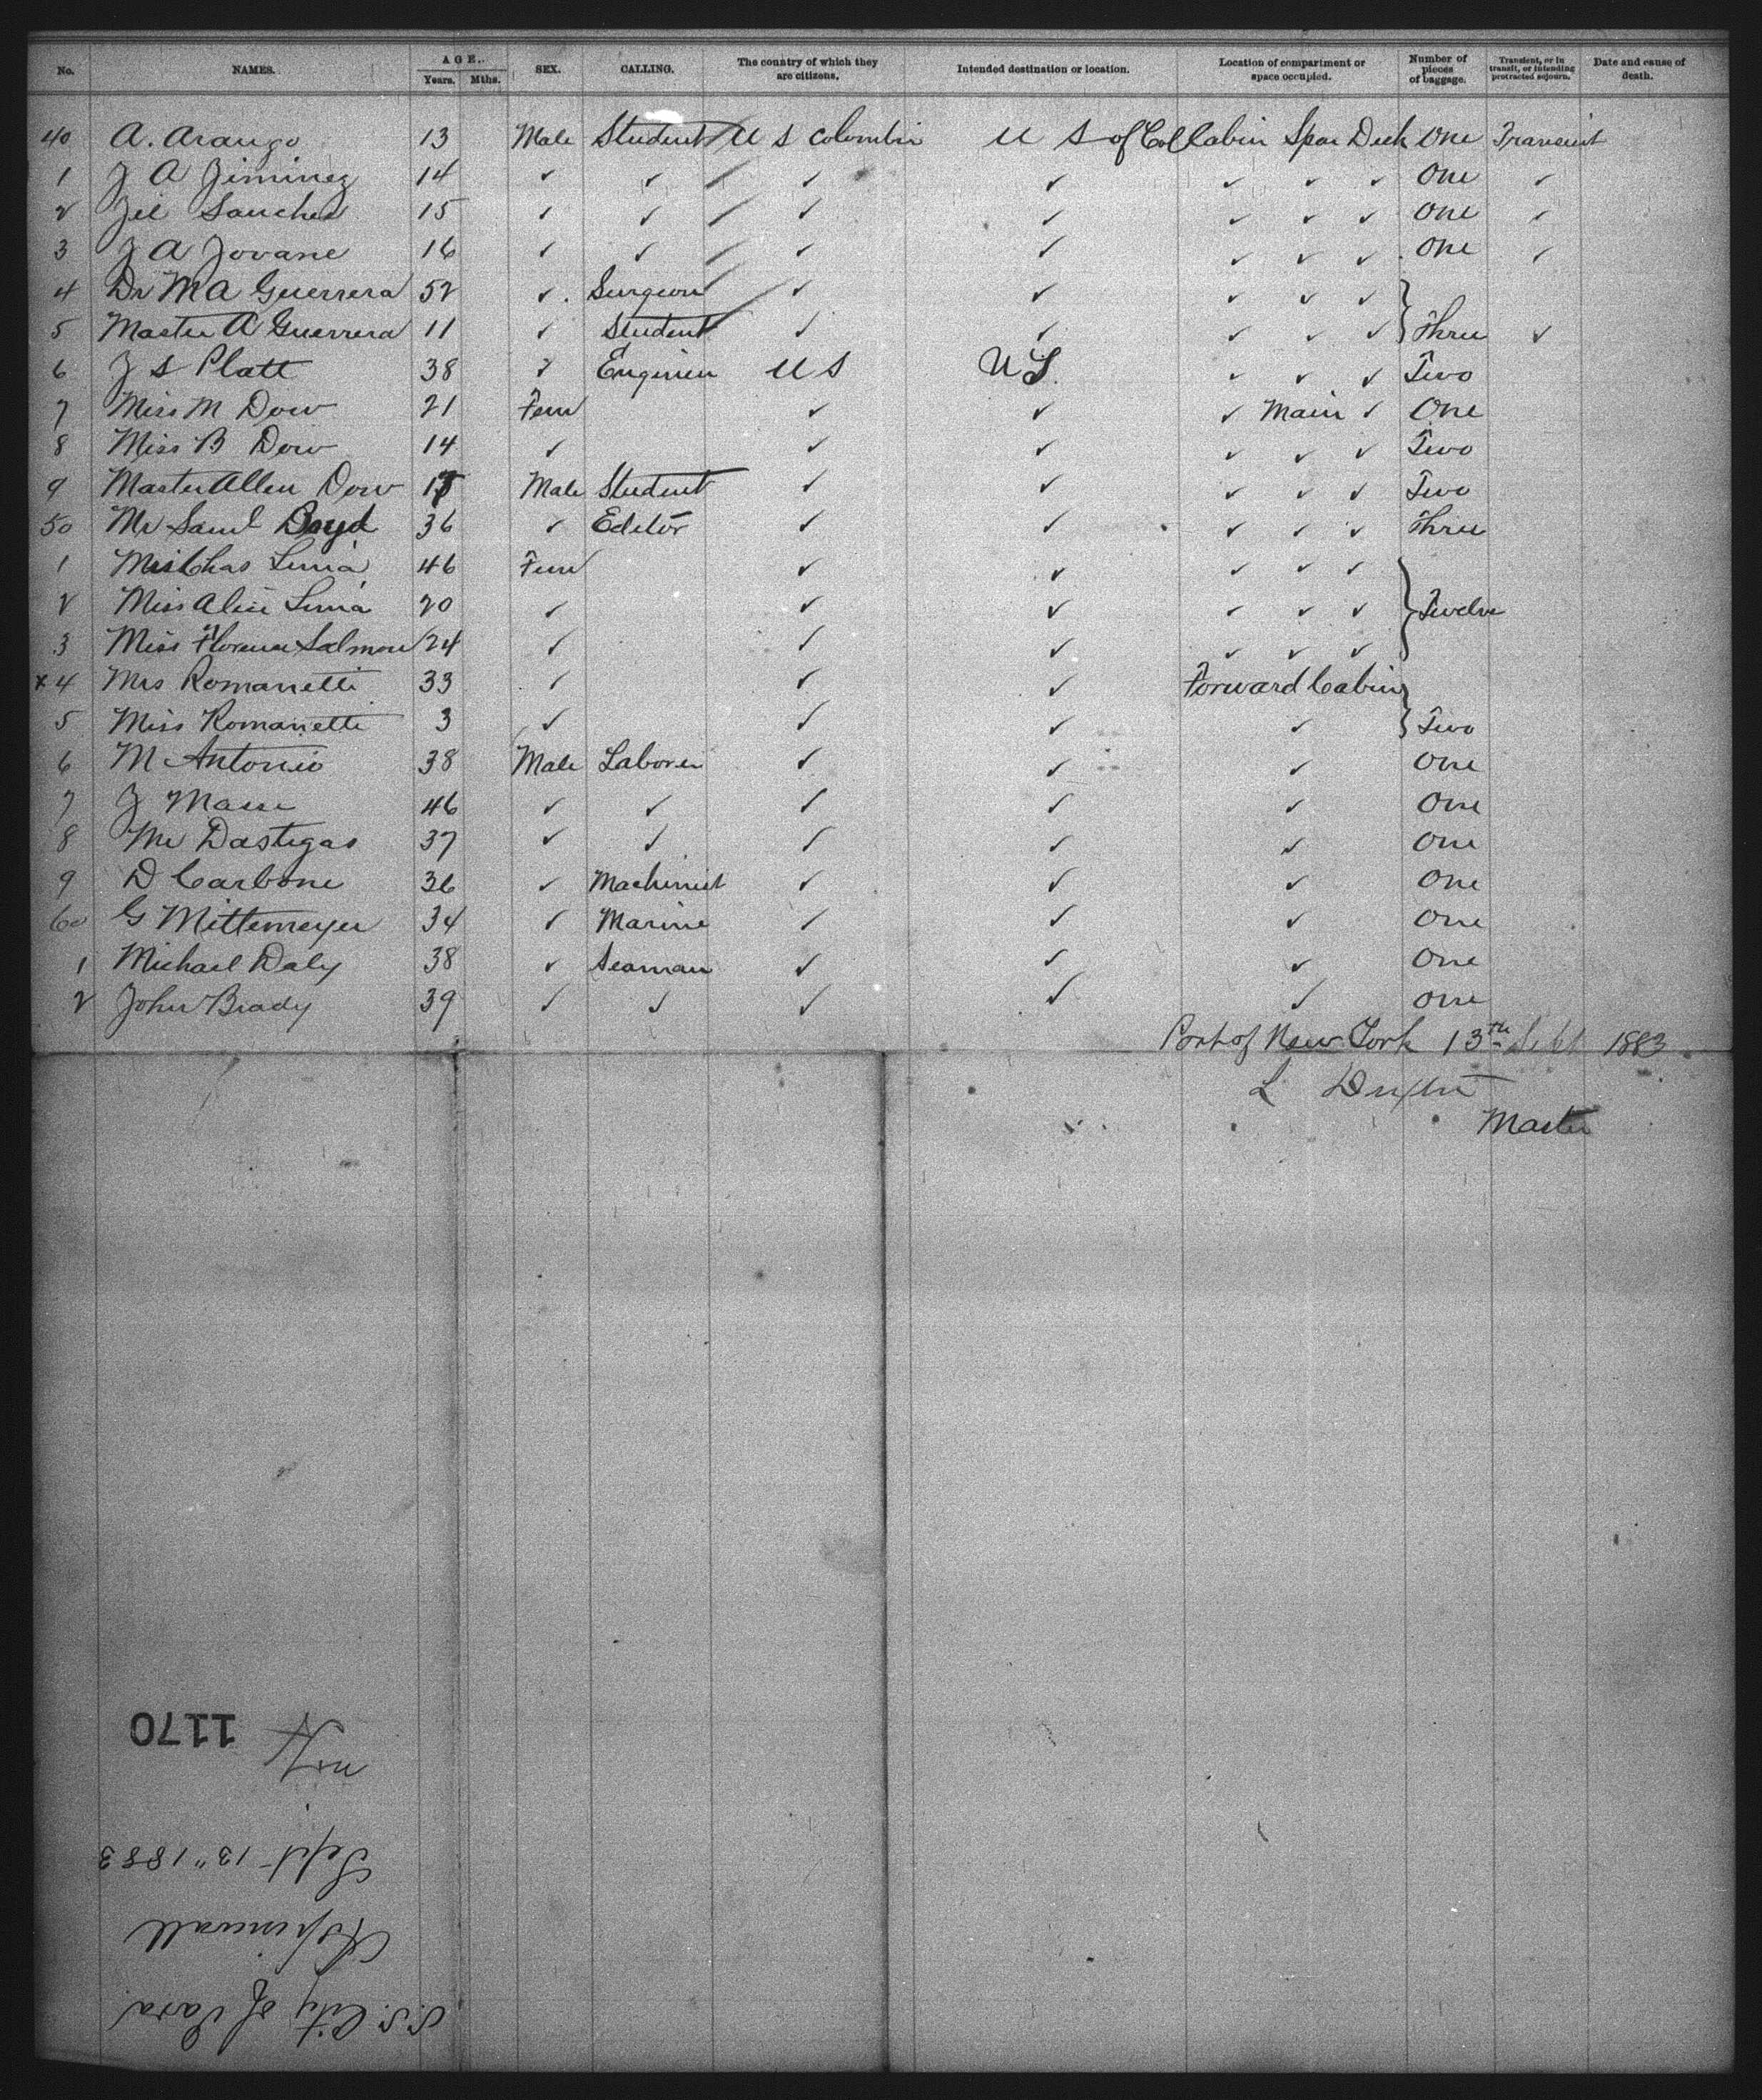 No. NAMES. AGE. Years. Mths. SEX. CALLING. The country of which they are citizens. Intended destination or location. Location of compartment or space occupied. Number of pieces of baggage. Transient, or in transit, or intending protracted sojourn. Date and cause of death.
40 A. Arango 13 Male Student U S Colombia U S of Col Cabin Spar Deck One Transient
1 J A Jiminez 14 ✓ ✓ ✓ ✓ ✓ ✓ ✓ One ✓
2 Gil Sanches 15 ✓ ✓ ✓ ✓ ✓ ✓ ✓ One ✓
3 J A Jovane 16 ✓ ✓ ✓ ✓ ✓ ✓ ✓ One ✓
4 Dr M A Guerrera 52 ✓ Surgeon ✓ ✓ ✓ ✓ ✓
5 Master A Guerrera 11 ✓ Student ✓ ✓ ✓ ✓ ✓ Three ✓
6 J S Platt 38 ✓ Engineer U S U S. ✓ ✓ ✓ Two
7 Miss M Dow 21 Fem ✓ ✓ ✓ Main ✓ One
8 Miss B Dow 14 ✓ ✓ ✓ ✓ ✓ ✓ Two
9 Master Allen Dow Male Student ✓ ✓ ✓ ✓ ✓ Two
50 Mr Saml Boyd 36 ✓ Editor ✓ ✓ ✓ ✓ ✓ Three
1 Mrs Chas 46 Fem ✓ ✓ ✓ ✓ ✓
2 Miss Alice 20 ✓ ✓ ✓ ✓ ✓ ✓ Twelve
3 Miss Florence Salmon 24 ✓ ✓ ✓ ✓ ✓ ✓
x 4 Mrs Romanetti 33 ✓ ✓ ✓ Forward Cabin
5 Miss Romanetti 3 ✓ ✓ ✓ ✓ Two
6 M Antonio 38 Male Laborer ✓ ✓ ✓ One
7 J Masse 46 ✓ ✓ ✓ ✓ ✓ One
8 Mr Dastegas 37 ✓ ✓ ✓ ✓ ✓ One
9 D Carbone 36 ✓ Machinist ✓ ✓ ✓ One
60 G Mittemeyer 34 ✓ Marine ✓ ✓ ✓ One
1 Michael Daly 38 ✓ Seaman ✓ ✓ ✓ One
2 John Brady 39 ✓ ✓ ✓ ✓ ✓ One
Port of New York 13th Sept 1883
L
Master
1170
Sept 13" 1883
Aspinwall
S.S. City of Para